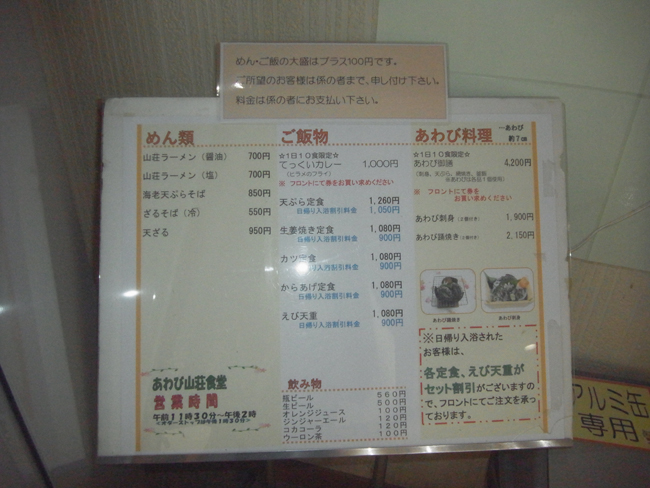 めん・ご飯の大盛はプラス100円です。
ご所望のお客様は係の者まで、申し付け下さい。
料金は係の者にお支払い下さい。
めん類
山荘ラーメン（醤油） 700円
山荘ラーメン（塩） 700円
海老天ぷらそば 850円
ざるそば（冷） 550円
天ざる 950円
あわび山荘食堂
営業時間
午前11時30分～午後2時
＜オーダーストップは午後1時30分＞
ご飯物
☆1日10食限定☆
てっくいカレー 1,000円
（ヒラメのフライ）
※ フロントにて券をお買い求めください
天ぷら定食 1,260円
日帰り入浴割引料金 1,050円
生姜焼き定食 1,080円
日帰り入浴割引料金 900円
カツ定食 1,080円
日帰り入浴割引料金 900円
からあげ定食 1,080円
日帰り入浴割引料金 900円
えび天重 1,080円
日帰り入浴割引料金 900円
飲み物
瓶ビール 560円
生ビール 500円
オレンジジュース 100円
ジンジャーエール 120円
コカコーラ 120円
ウーロン茶 100円
あわび料理
一あわび
約7㎝
☆1日10食限定☆
あわび御膳 4,200円
※ フロントにて券を
お買い求めください
あわび刺身（2個付き） 1,900円
あわび踊焼き（2個付き） 2,150円
あわび踊焼き
あわび刺身
※日帰り入浴された
お客様は、
各定食、えび天重が
セット割引がございますの
で、フロントにてご注文を承っ
ております。
アルミ缶
専用